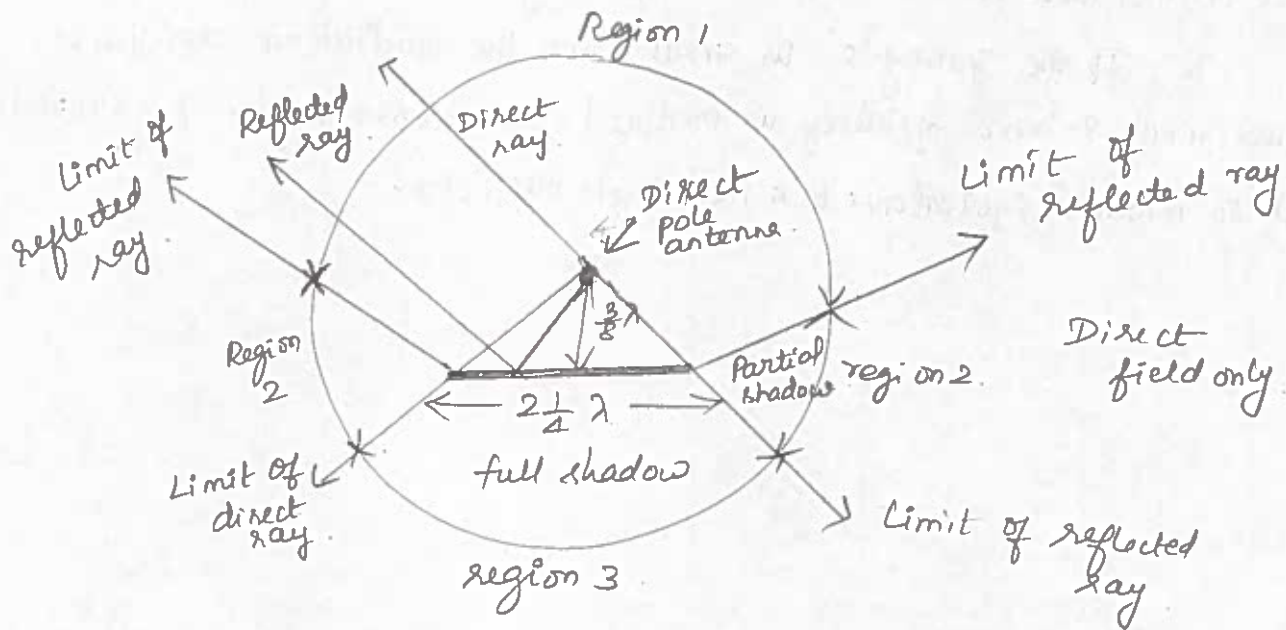 Region 1
Reflected
ray.
Direct
ray.
Limit of
reflected
ray.
Direct
pole
antenne.
Limit of
reflected ray
3/8 λ
Region
2
Partial
shadow
region 2.
Direct
field only
2 1/4 λ
full shadow
Limit of
direct
ray.
Limit of reflected
ray
region 3.